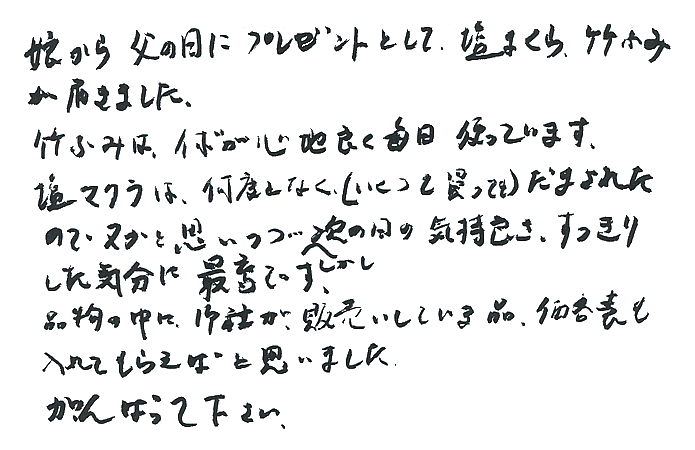 娘から父の日にプレゼントとして、塩まくら、竹ふみ
が届きました。
竹ふみは、イボが心地良く毎日使っています。
塩マクラは、何度となく(いくつも買っても)だまされた
ので、又かと思いつつ…次の日の気持良さ、すっきり
しかし
した気分に最高です。
品物の中に、御社が、販売いしている品、価格表も
入れてもらえればと思いました。
がんばって下さい、